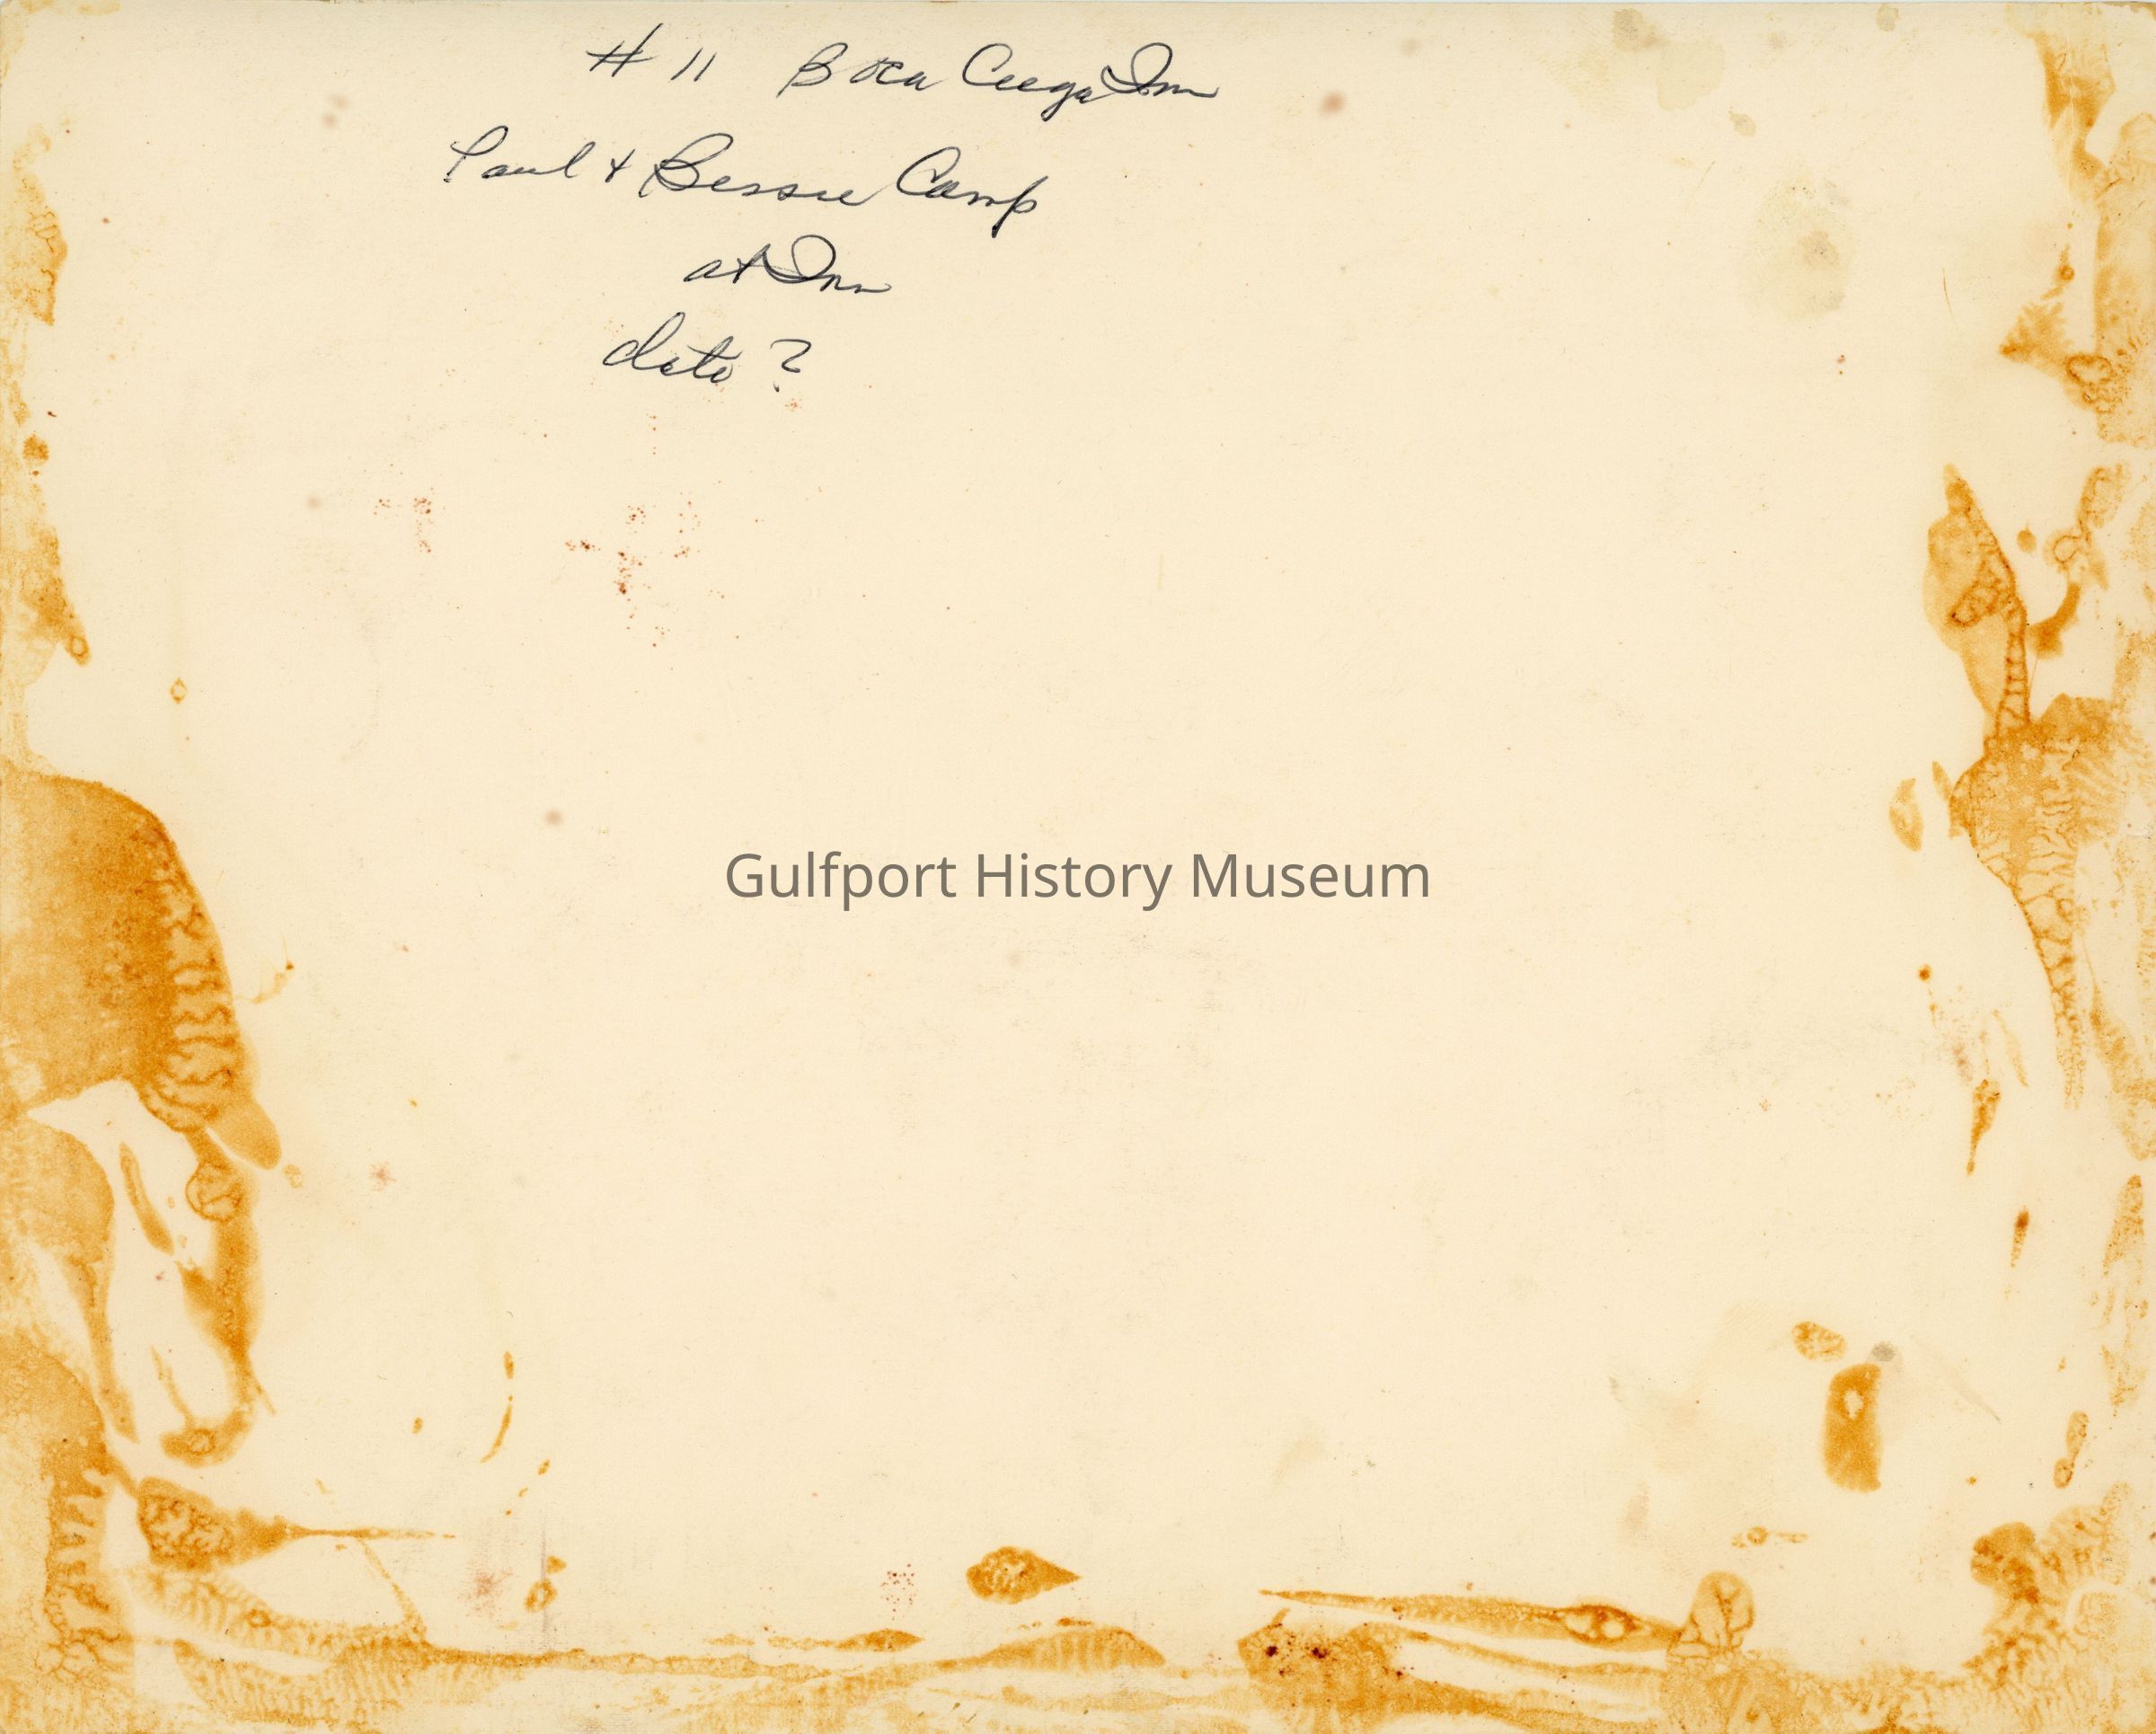 # 11 Boca Ceega Inn
Paul + Bessie Camp
at Inn
date ?
Gulfport History Museum